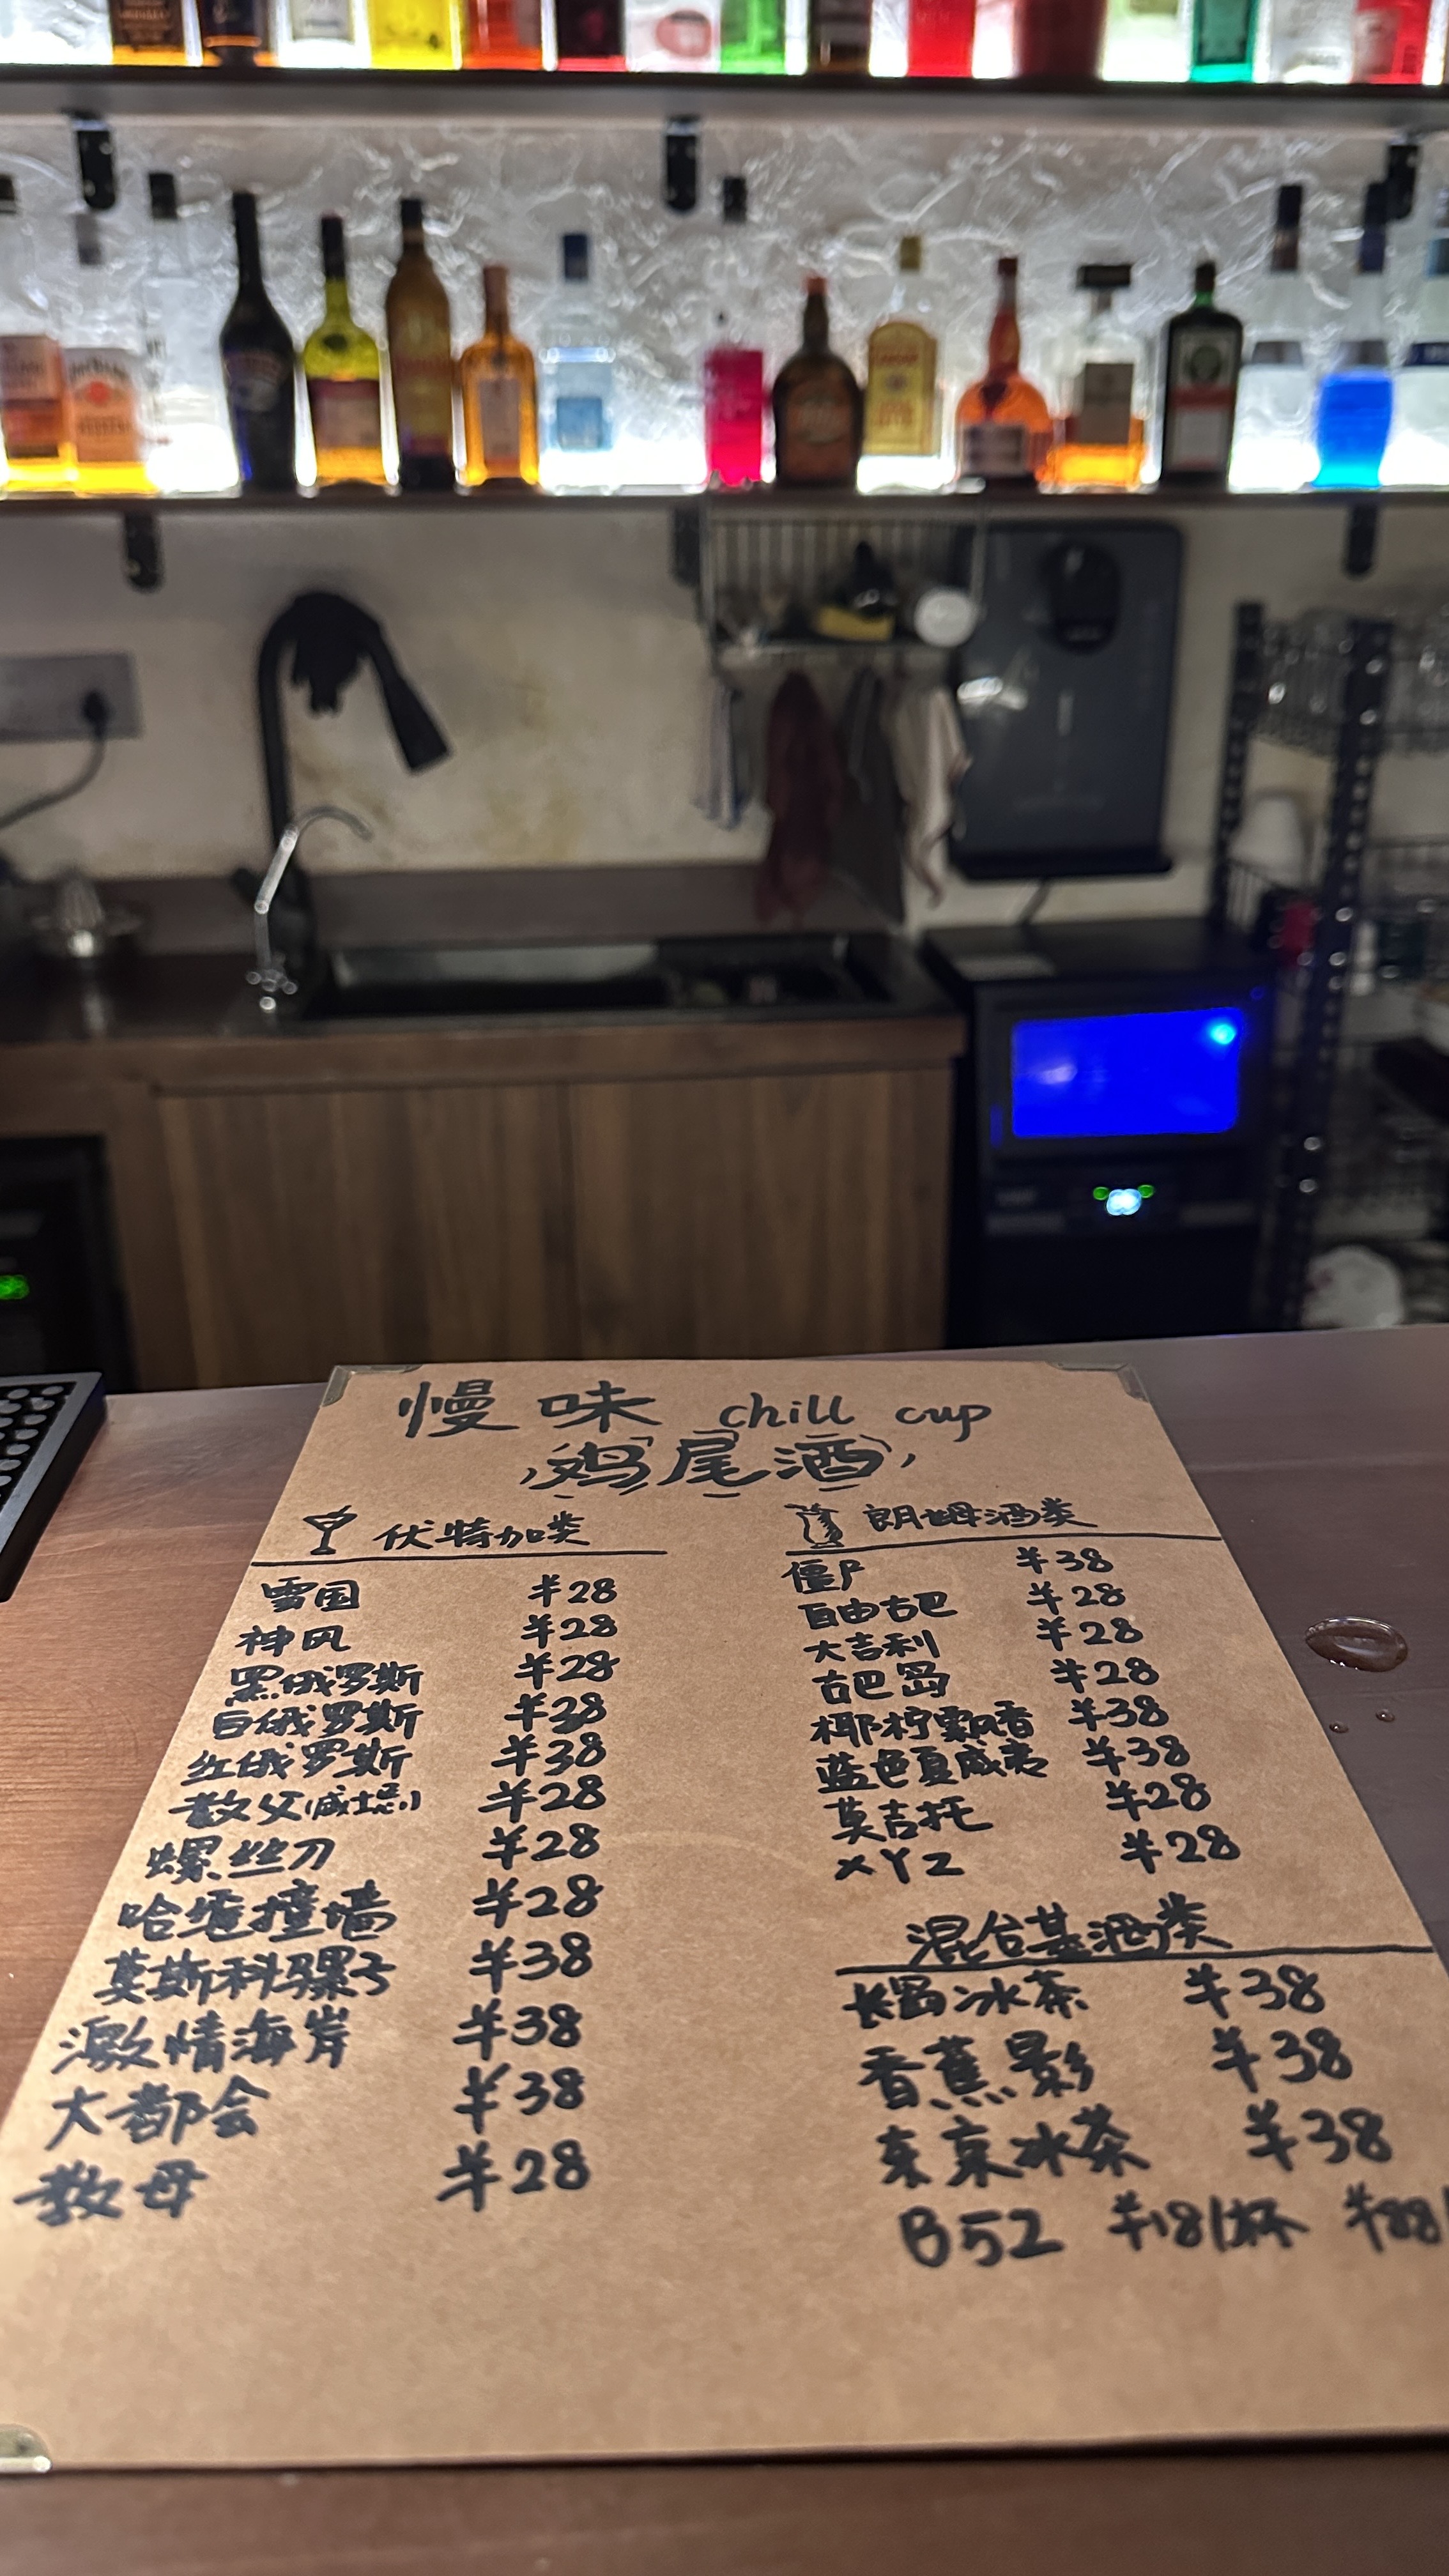 慢味 chill cup
鸡尾酒
伏特加类
雪国 ¥28
神风 ¥28
黑俄罗斯 ¥28
白俄罗斯 ¥38
红俄罗斯 ¥38
教父(威士忌) ¥28
螺丝刀 ¥28
哈维撞墙 ¥28
莫斯科骡子 ¥38
激情海岸 ¥38
大都会 ¥38
教母 ¥28
朗姆酒类
僵尸 ¥38
自由古巴 ¥28
大吉利 ¥28
古巴岛 ¥28
椰柠飘香 ¥38
蓝色夏威夷 ¥38
莫吉托 ¥28
XYZ ¥28
混合基酒类
长岛冰茶 ¥38
香蕉影 ¥38
东京冰茶 ¥38
B52 ¥18/杯 ¥88/